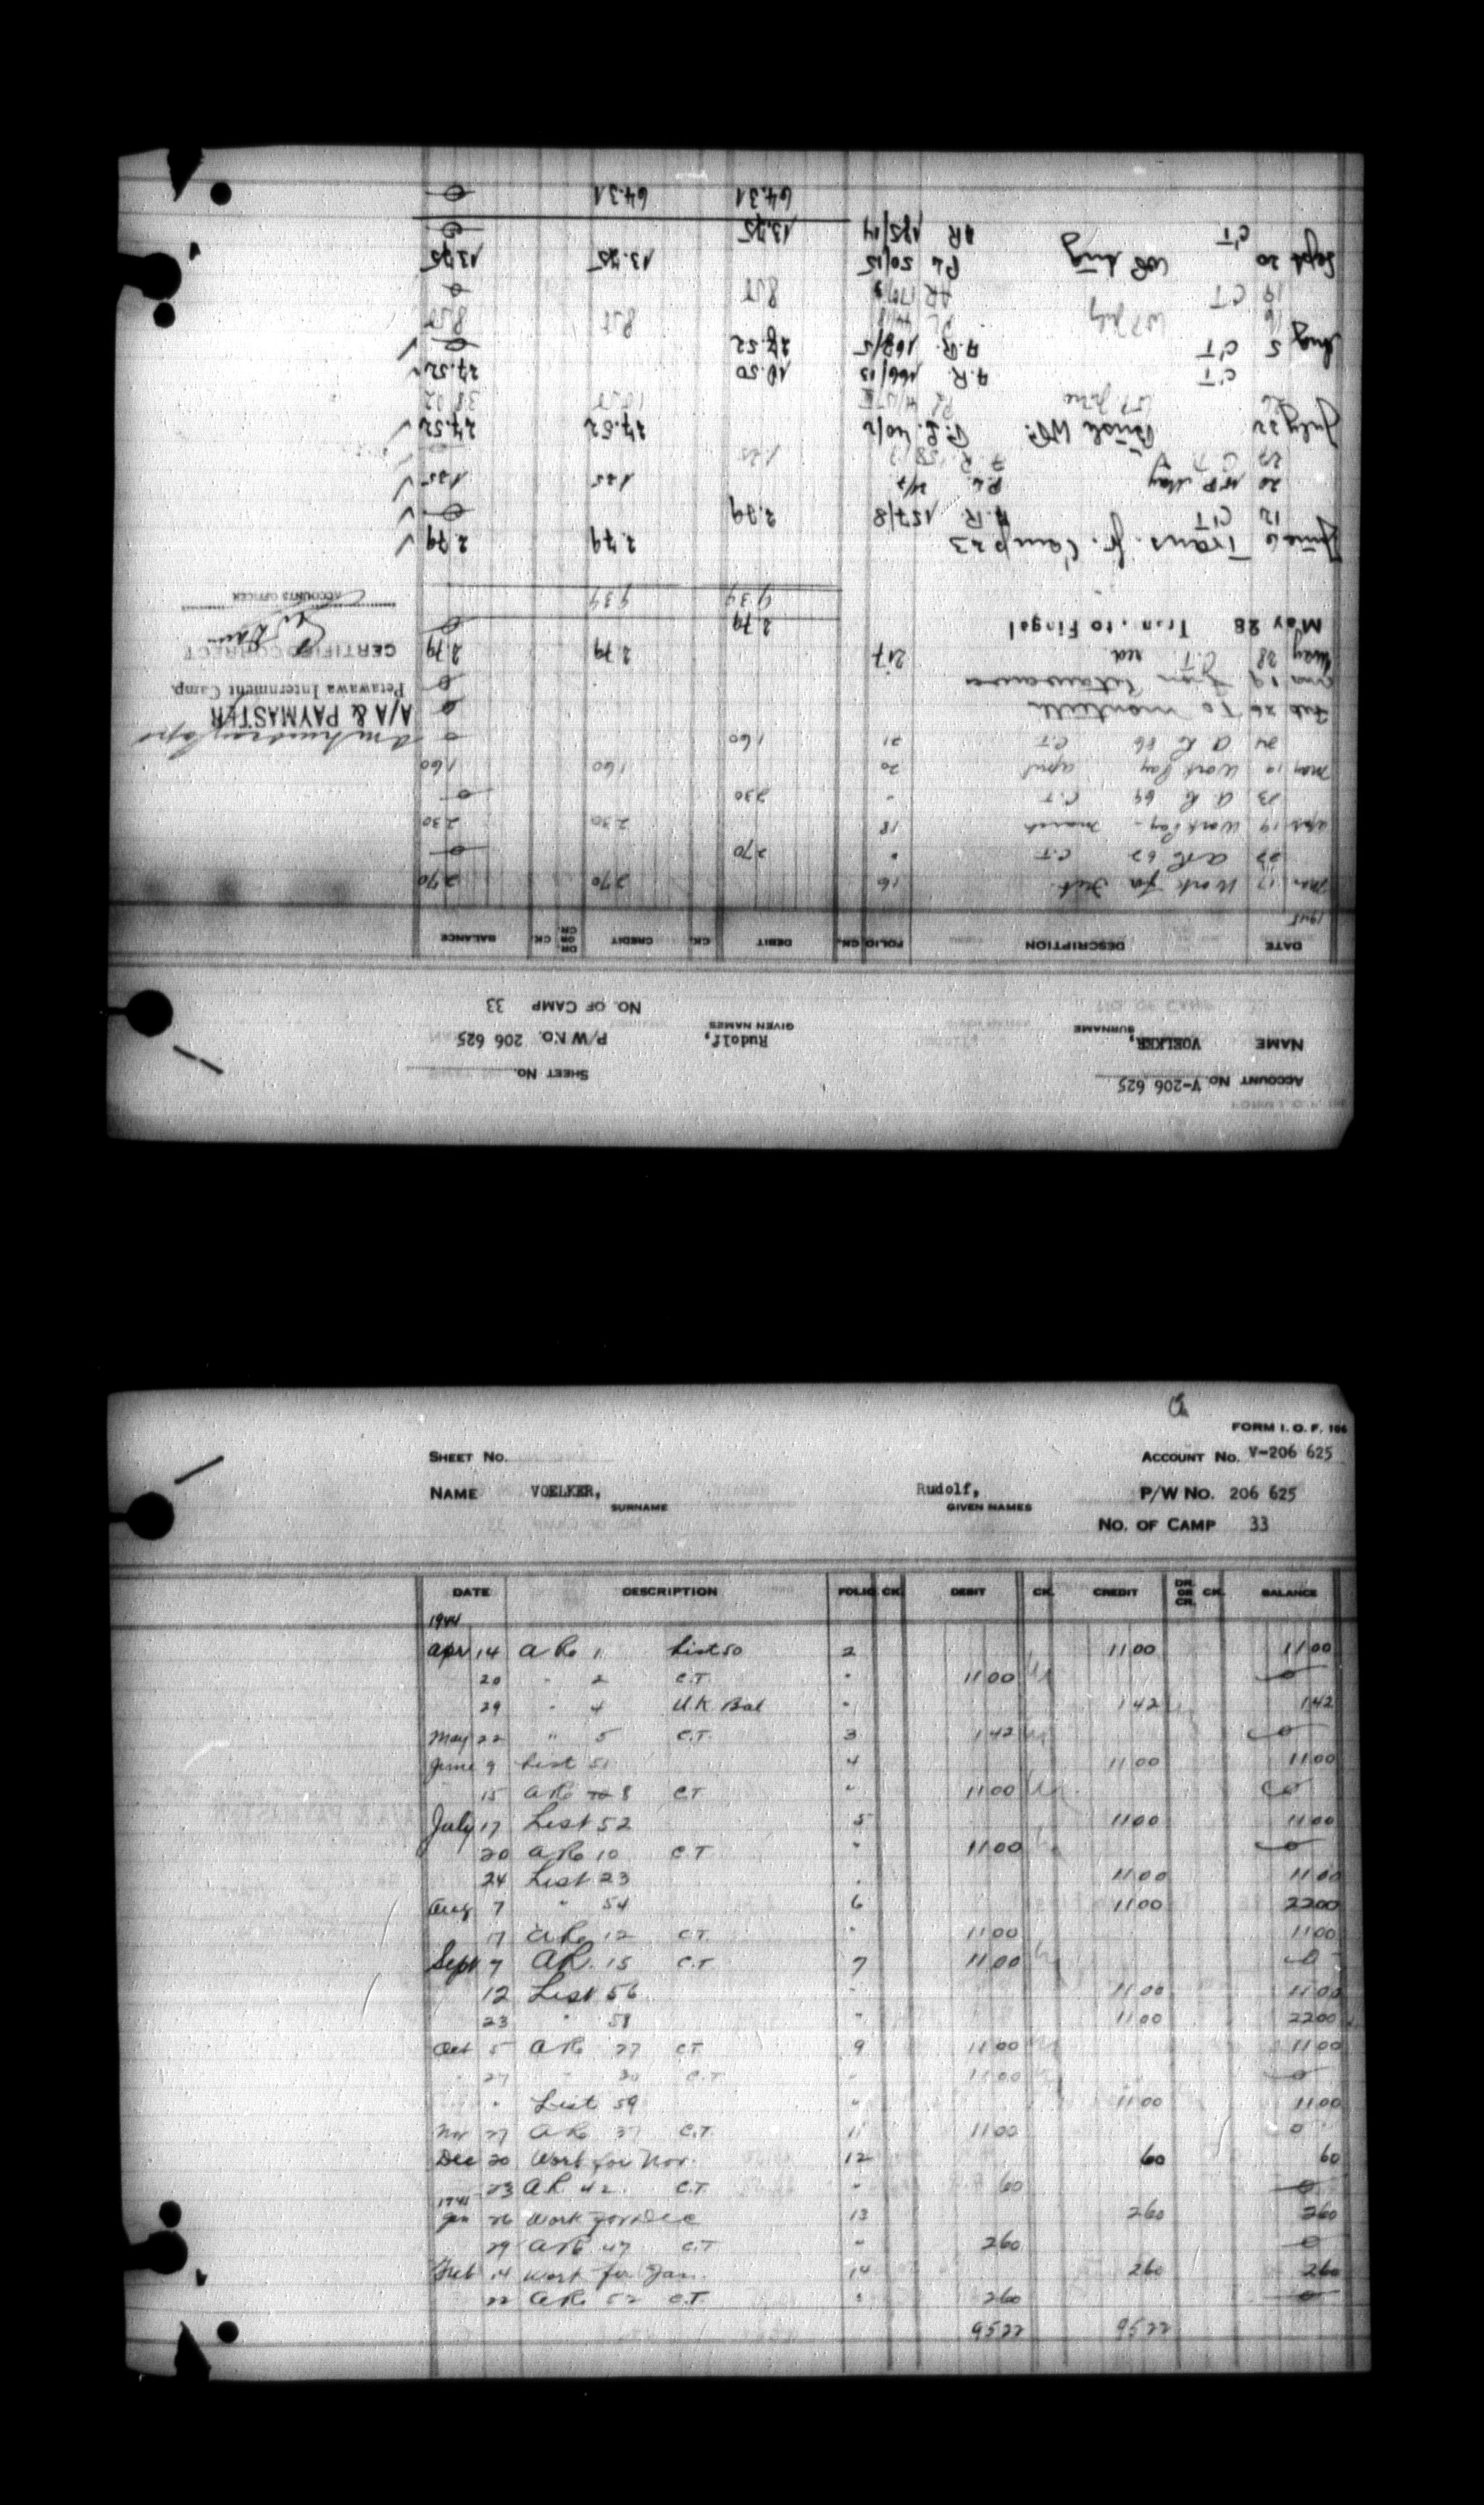 a
FORM I. O. F. 166
SHEET No. ACCOUNT No. V-206 625
NAME VOELKER, Rudolf, P/W No. 206 625
SURNAME GIVEN NAMES
No. OF CAMP 33
DATE DESCRIPTION FOLIO CK. DEBIT CK. CREDIT DR. OR CR. CK. BALANCE
1944
Apr 14 A Rs 1 List 50 2 11 00 11 00
20 " 2 C.T. " 11 00 0
29 " 4 U.K Bal " 1 42 1 42
May 22 " 5 C.T. 3 1 42 0
June 9 List 51 4 11 00 11 00
15 A Rs 8 C.T " 11 00 0
July 17 List 52 5 11 00 11 00
20 A Rs 10 C.T " 11 00 0
24 List 23 " 11 00 11 00
Aug 7 " 54 6 11 00 22 00
17 A Rs 12 C.T. " 11 00 11 00
Sept 7 AR. 15 C.T 7 11 00 0
12 List 56 " 11 00 11 00
23 " 58 " 11 00 22 00
Oct 5 A Rs 27 C.T 9 11 00 11 00
" 27 " 30 C.T. " 11 00 0
" List 59 " 11 00 11 00
Nov 27 A Rs 37 C.T. 11 11 00 0
Dec 20 Work for Nov. 12 60 60
23 AR 42. C.T. " 60 0
1945
Jan 26 Work for Dec 13 2 60 2 60
29 A Rs 47 C.T " 2 60 0
Feb 14 Work for Jan. 14 2 60 2 60
22 A Rs 52 C.T. " 2 60 0
95 22 95 22
FORM I. O. F. 166
ACCOUNT No. V-206 625 SHEET No.
NAME VOELKER, Rudolf, P/W No. 206 625
SURNAME GIVEN NAMES
No. OF CAMP 33
DATE DESCRIPTION FOLIO CK. DEBIT CK. CREDIT DR. OR CR. CK. BALANCE
1945
Mar 17 Work for Feb. 16 2 70 2 70
22 A Rs 62 C.T. " 2 70 0
Apr 19 Work Pay - March 18 2 30 2 30
23 A Rs 69 C.T " 2 30 0
May 19 Work Pay April 20 1 60 1 60
24 A Rs 86 C.T 21 1 60 0
Feb 26 To Monteith 0
19 From Petawawa 0
May 28 C.T. red 217 2 79 2 79
May 28 Tran. to Fingal 2 79 0
9 39 9 39
A/A & PAYMASTER
Petawawa Internment Camp.
CERTIFIED CORRECT
ACCOUNTS OFFICER
June 6 Trans. fr. Camp 23 2.79 2.79
12 C.T A.R. 157/8 2.79 0
20 WP May P.L. 1 25 1 25
27 C.T. A.R. 158/ 1.25
July 22 Bush WP. P.L. 40/2 27.52 27.52
26 WP June PL 38 02
C.T A.R. 166/13 10.50 27.52
Aug 5 C.T A.R. 168/5 27.52 0
16 WP July PL
19 C.T AR 170/
Sept 20 WP Aug P.L 50/15 13.75 13.75
C.T AR 175/14 13.75 0
64.31 64.31 0